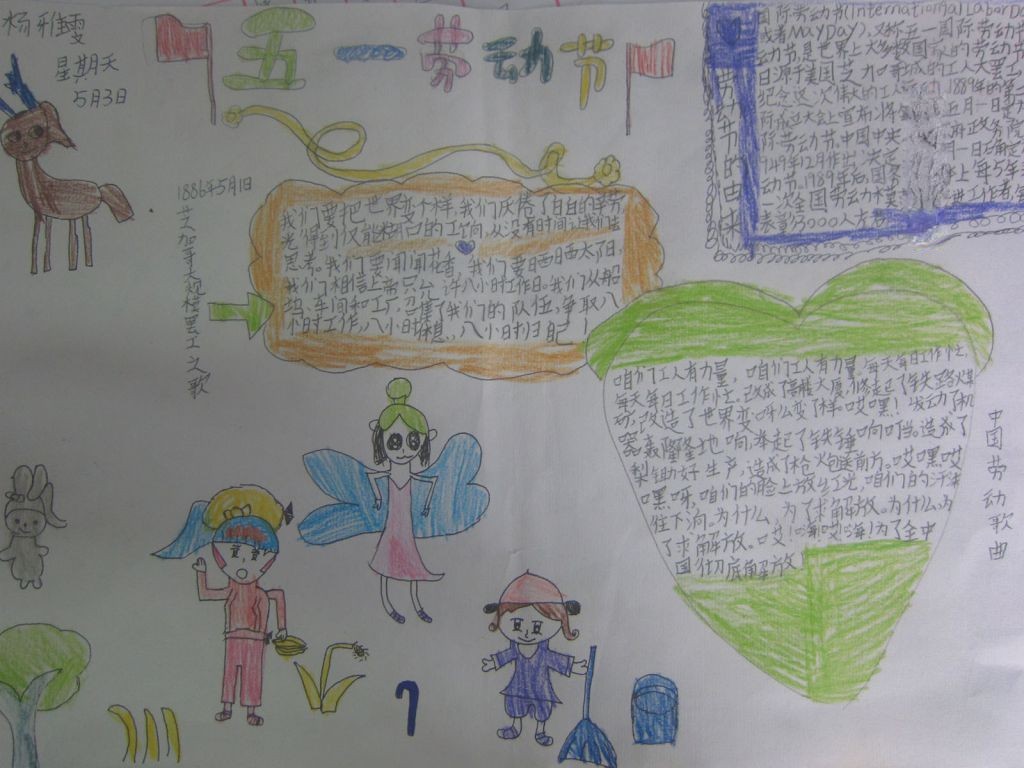 杨雅雯
星期天
5月3日
五一劳动节
国际劳动节(International Labor Da
或者MayDay),又称五一国际劳动节
动节是世界上大多数国家的劳动节
日源于美国芝加哥城的工人大罢工
纪念这次伟大的工人
1889年的第二
际成立大会上宣布,将
五月一日定为
际劳动节,中国中央
府政务院
1949年12月作出决定,
月一日确定
动节.1989年后,国务
上每5年
一次全国劳动模
进工作者
表彰3000人
劳动节的由来
1886年5月1日
芝加哥大规模罢工之歌
我们要把世界变个样,我们厌倦了白白的辛劳
光得到仅能糊口的工饷,从没有时间让我们去
思考。我们要闻闻花香,我们要晒晒太阳
我们相信上帝只允许八小时工作日。我们从船
坞,车间和工厂,召集了我们的队伍,争取八
小时工作,八小时休息,八小时归自己!
咱们工人有力量,咱们工人有力量,每天每日工作忙,
每天每日工作忙,改成了高楼大厦,修起了铁路煤
动,改造了世界变呀么变了样,哎嘿!发动了机
器轰隆隆地响,举起了铁锤响叮当。造成了
犁锄好生产,造成了枪炮送前方。哎嘿哎
嘿呀,咱们的脸上放红光,咱们的汗珠
往下淌。为什么,为了求解放。为什么,为
了求解放。哎!嗨!哎!嗨!为了全中
国彻底解放
中国劳动歌曲